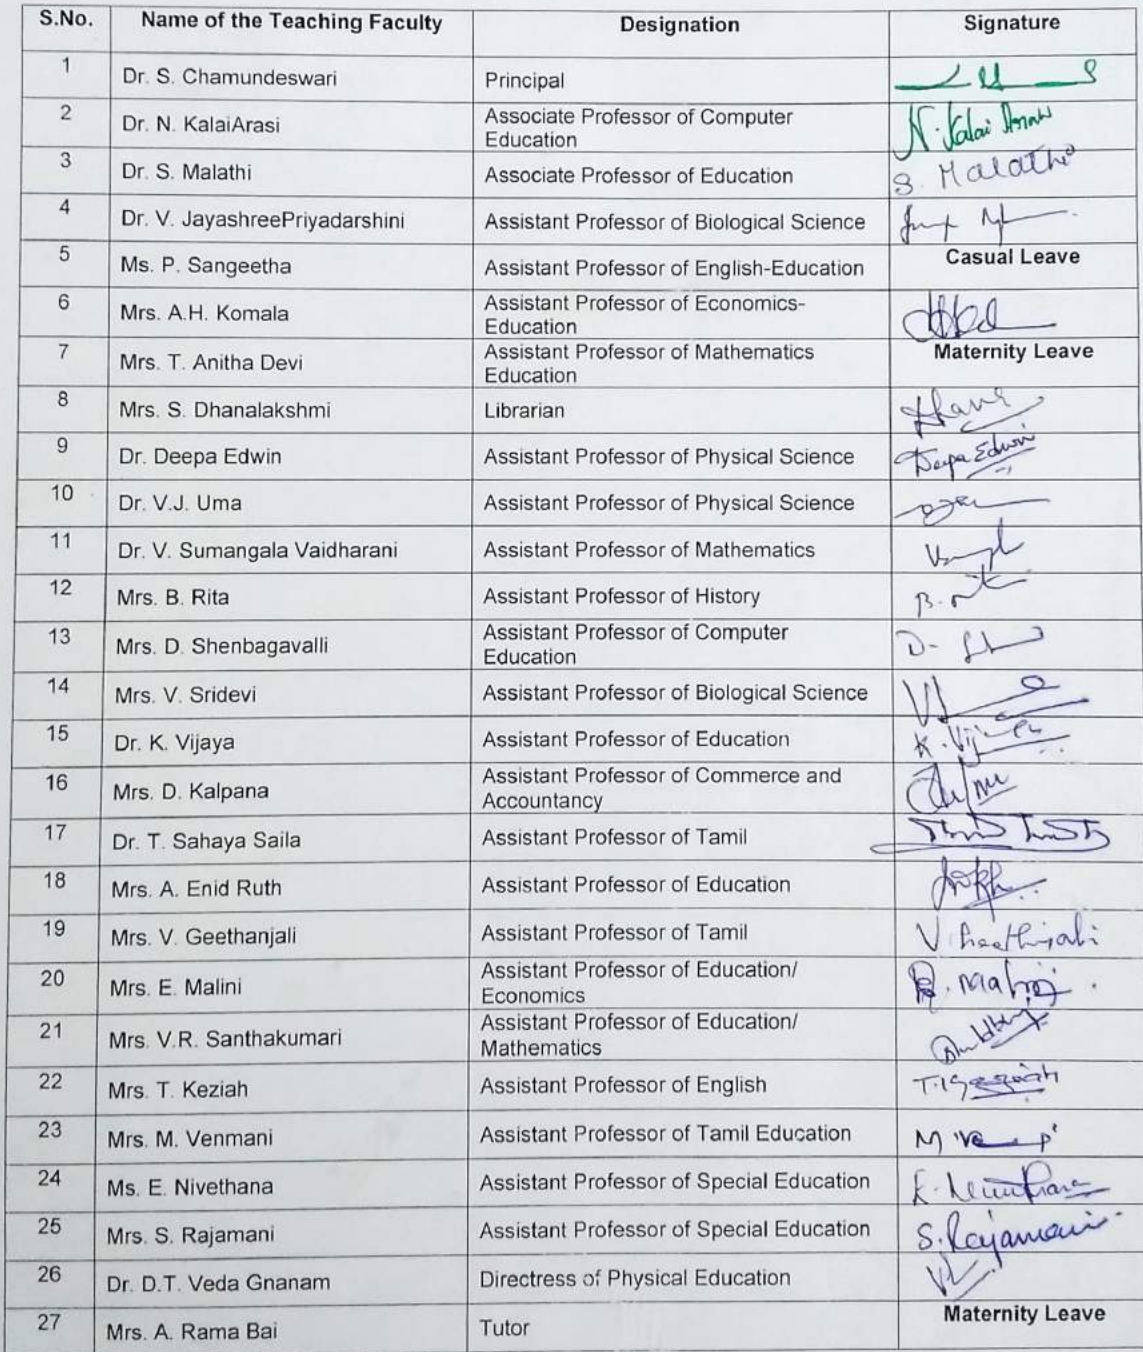 S.No. Name of the Teaching Faculty Designation Signature
1 Dr. S. Chamundeswari Principal
2 Dr. N. KalaiArasi Associate Professor of Computer
Education N. Kalai Arasi
3 Dr. S. Malathi Associate Professor of Education S. Malathi
4 Dr. V. JayashreePriyadarshini Assistant Professor of Biological Science
5 Ms. P. Sangeetha Assistant Professor of English-Education Casual Leave
6 Mrs. A.H. Komala Assistant Professor of Economics-
Education
7 Mrs. T. Anitha Devi Assistant Professor of Mathematics
Education Maternity Leave
8 Mrs. S. Dhanalakshmi Librarian
9 Dr. Deepa Edwin Assistant Professor of Physical Science Deepa Edwin
10 Dr. V.J. Uma Assistant Professor of Physical Science
11 Dr. V. Sumangala Vaidharani Assistant Professor of Mathematics
12 Mrs. B. Rita Assistant Professor of History
13 Mrs. D. Shenbagavalli Assistant Professor of Computer
Education
14 Mrs. V. Sridevi Assistant Professor of Biological Science
15 Dr. K. Vijaya Assistant Professor of Education
16 Mrs. D. Kalpana Assistant Professor of Commerce and
Accountancy
17 Dr. T. Sahaya Saila Assistant Professor of Tamil
18 Mrs. A. Enid Ruth Assistant Professor of Education
19 Mrs. V. Geethanjali Assistant Professor of Tamil V. Geethanjali
20 Mrs. E. Malini Assistant Professor of Education/
Economics
21 Mrs. V.R. Santhakumari Assistant Professor of Education/
Mathematics
22 Mrs. T. Keziah Assistant Professor of English
23 Mrs. M. Venmani Assistant Professor of Tamil Education
24 Ms. E. Nivethana Assistant Professor of Special Education
25 Mrs. S. Rajamani Assistant Professor of Special Education S. Rajamani
26 Dr. D.T. Veda Gnanam Directress of Physical Education
27 Mrs. A. Rama Bai Tutor Maternity Leave